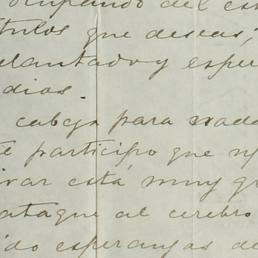 ocupando del es
títulos que deseas;
elantado y espe
dios.
cabeza para nada
te participo que n
var está muy gr
ataque al cerebro
ido esperanzas de